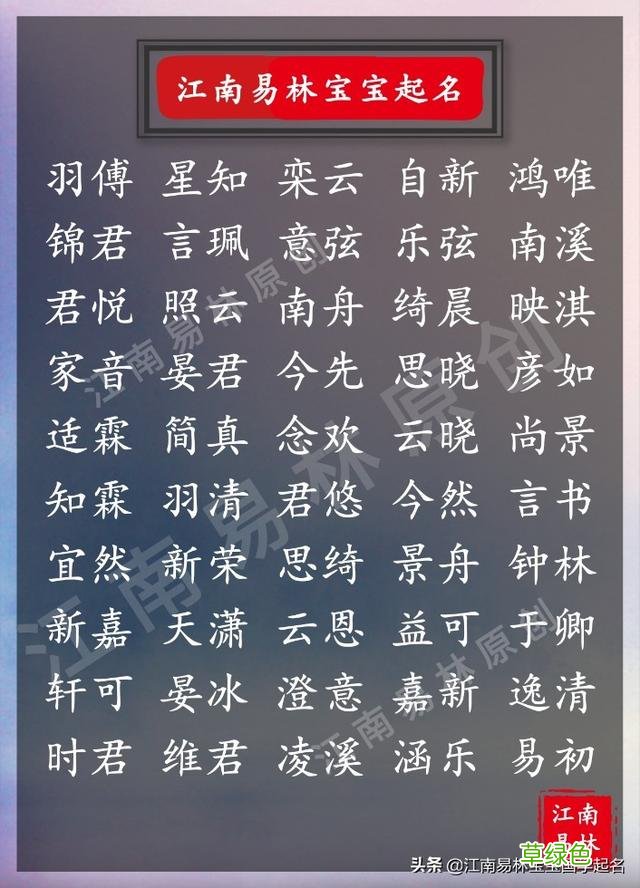 江南易林宝宝起名
羽傅 星知 栾云 自新 鸿唯
锦君 言珮 意弦 乐弦 南溪
君悦 照云 南舟 绮晨 映淇
家音 晏君 今先 思晓 彦如
适霖 简真 念欢 云晓 尚景
知霖 羽清 君悠 今然 言书
宜然 新荣 思绮 景舟 钟林
新嘉 天潇 云恩 益可 于卿
轩可 晏冰 澄意 嘉新 逸清
时君 维君 凌溪 涵乐 易初
江南易林原创
江南易林原创
江南易林原创
江南
易林
草绿色
头条 @江南易林宝宝国学起名